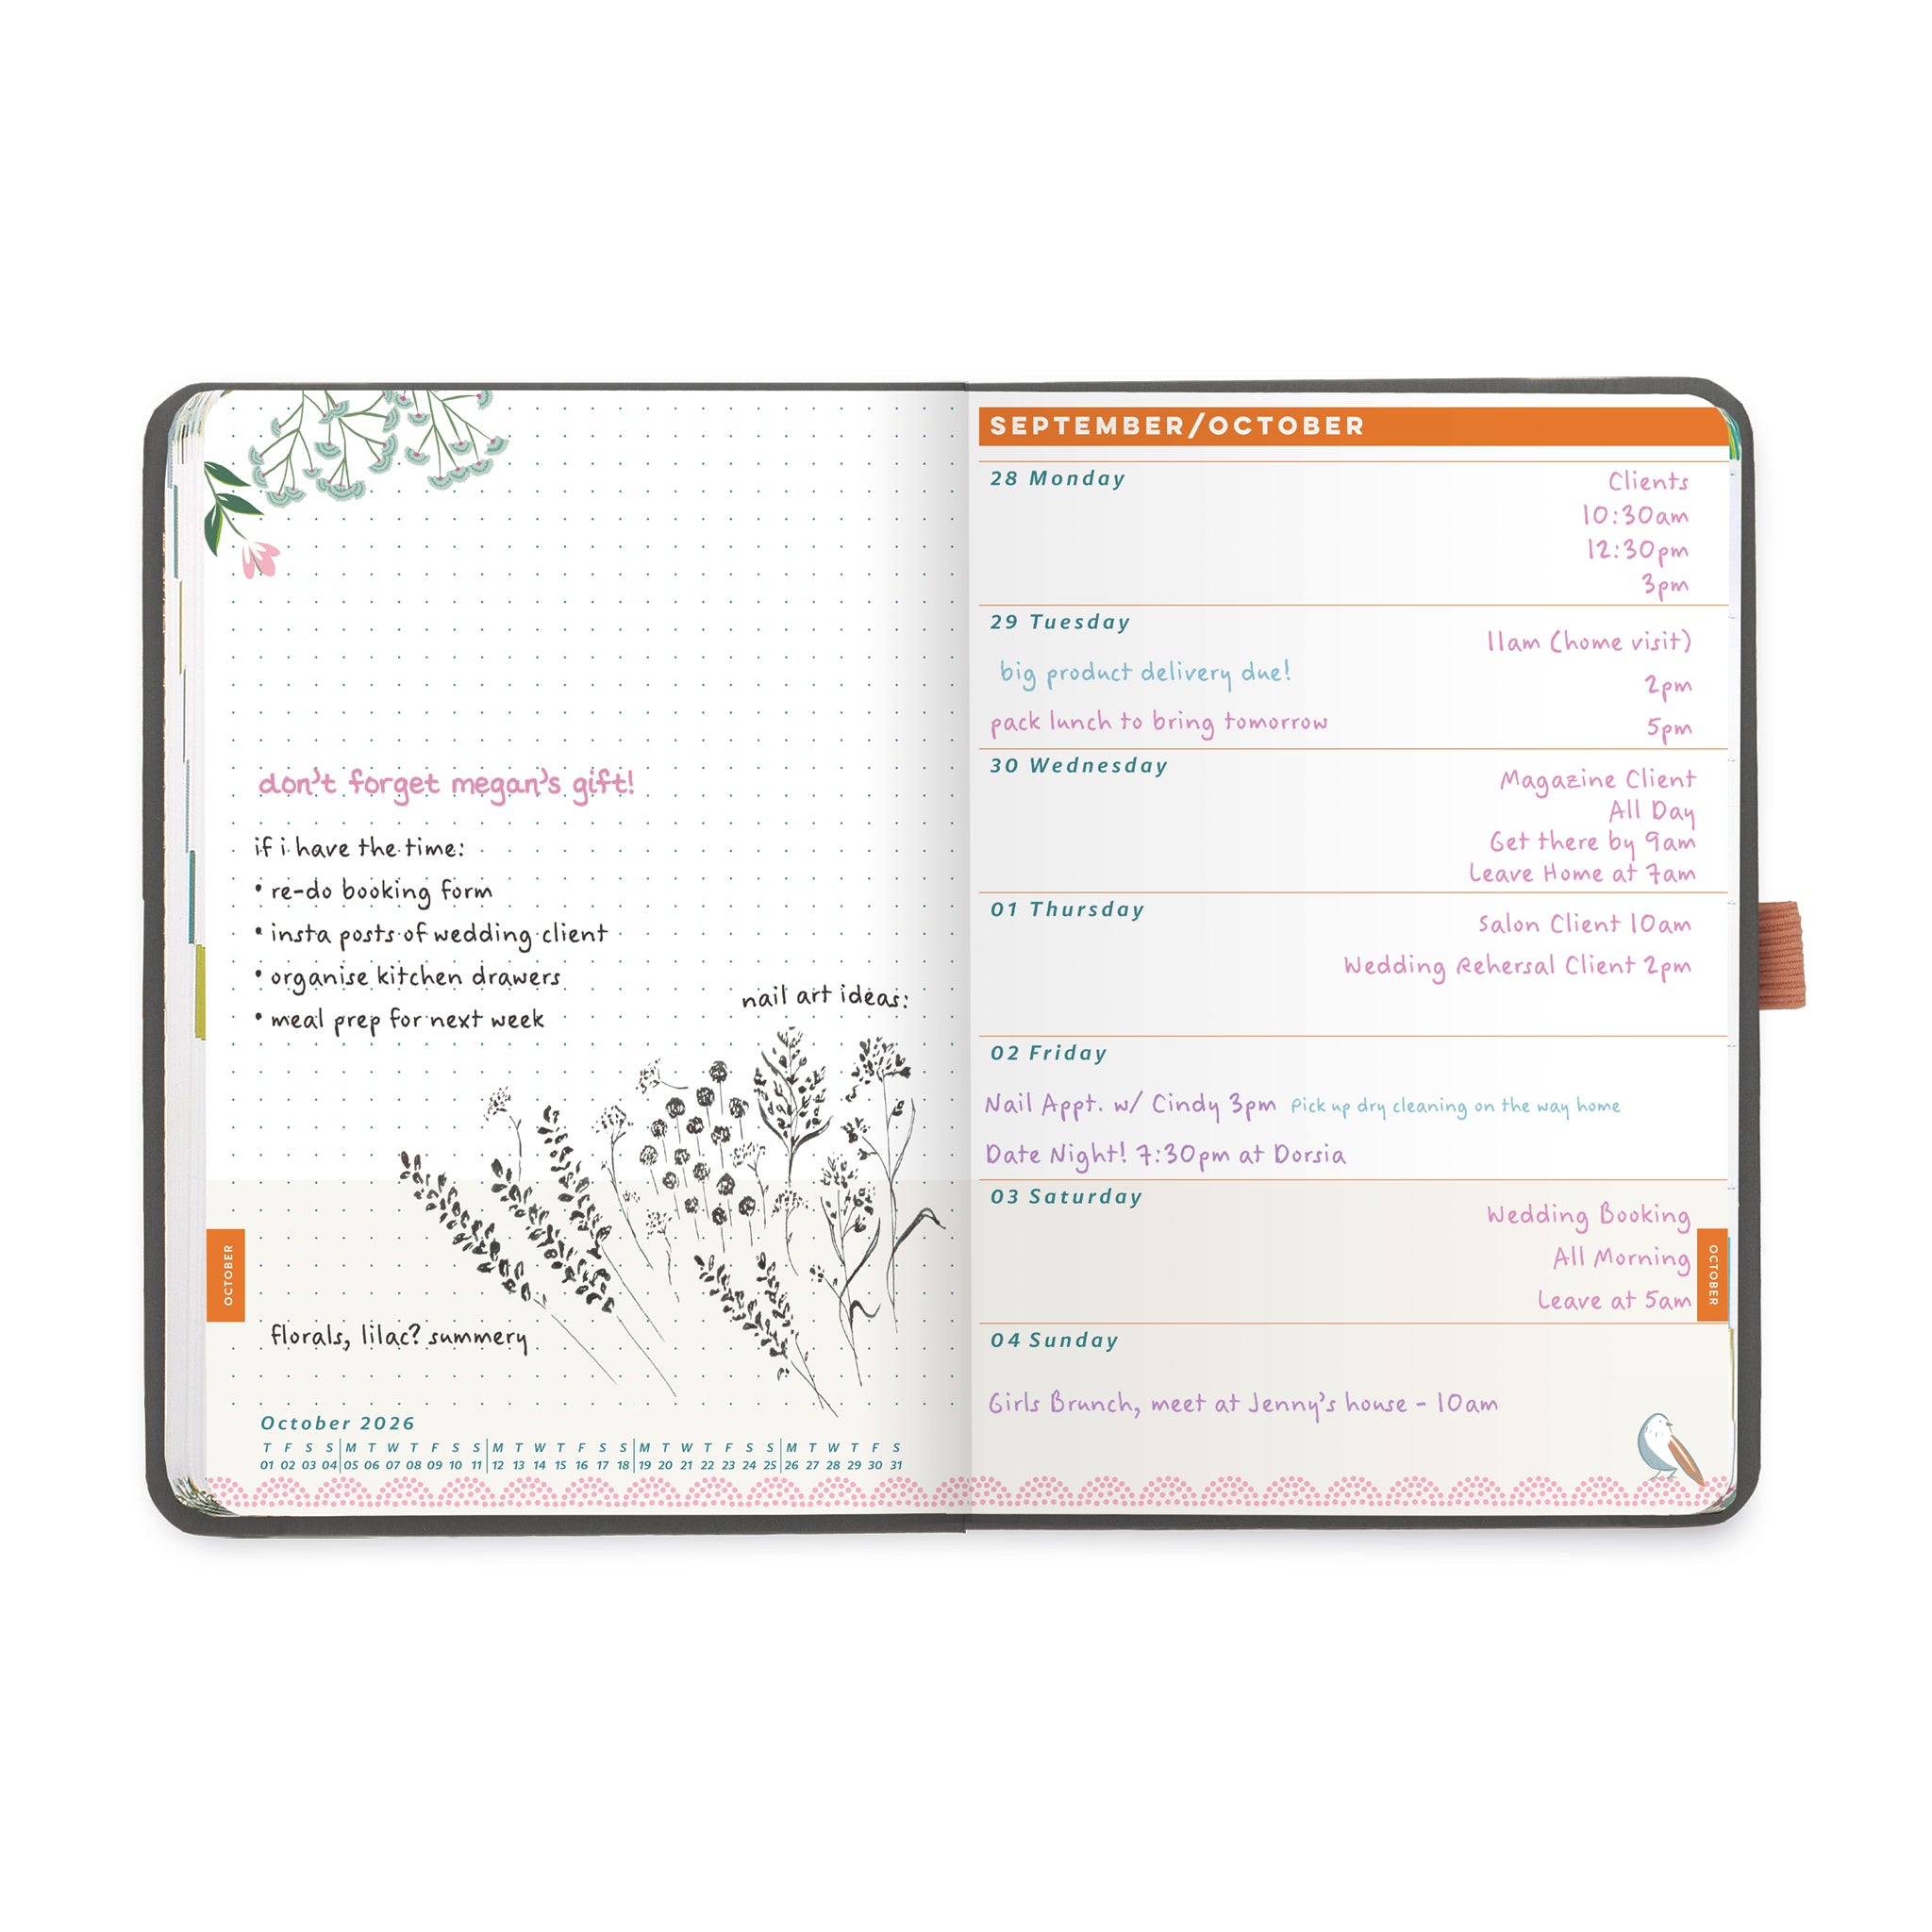 don't forget megan's gift!
if i have the time:
• re-do booking form
• insta posts of wedding client
• organise kitchen drawers
• meal prep for next week
nail art ideas:
OCTOBER
florals, lilac? summery
October 2026
T F S S M T W T F S S M T W T F S S M T W T F S S M T W T F S
01 02 03 04 05 06 07 08 09 10 11 12 13 14 15 16 17 18 19 20 21 22 23 24 25 26 27 28 29 30 31
SEPTEMBER/OCTOBER
28 Monday
Clients
10:30am
12:30pm
3pm
29 Tuesday
11am (home visit)
big product delivery due!
2pm
pack lunch to bring tomorrow
5pm
30 Wednesday
Magazine Client
All Day
Get there by 9am
Leave Home at 7am
01 Thursday
Salon Client 10am
Wedding Rehersal Client 2pm
02 Friday
Nail Appt. w/ Cindy 3pm Pick up dry cleaning on the way home
Date Night! 7:30pm at Dorsia
03 Saturday
Wedding Booking
All Morning
Leave at 5am
OCTOBER
04 Sunday
Girls Brunch, meet at Jenny's house - 10am